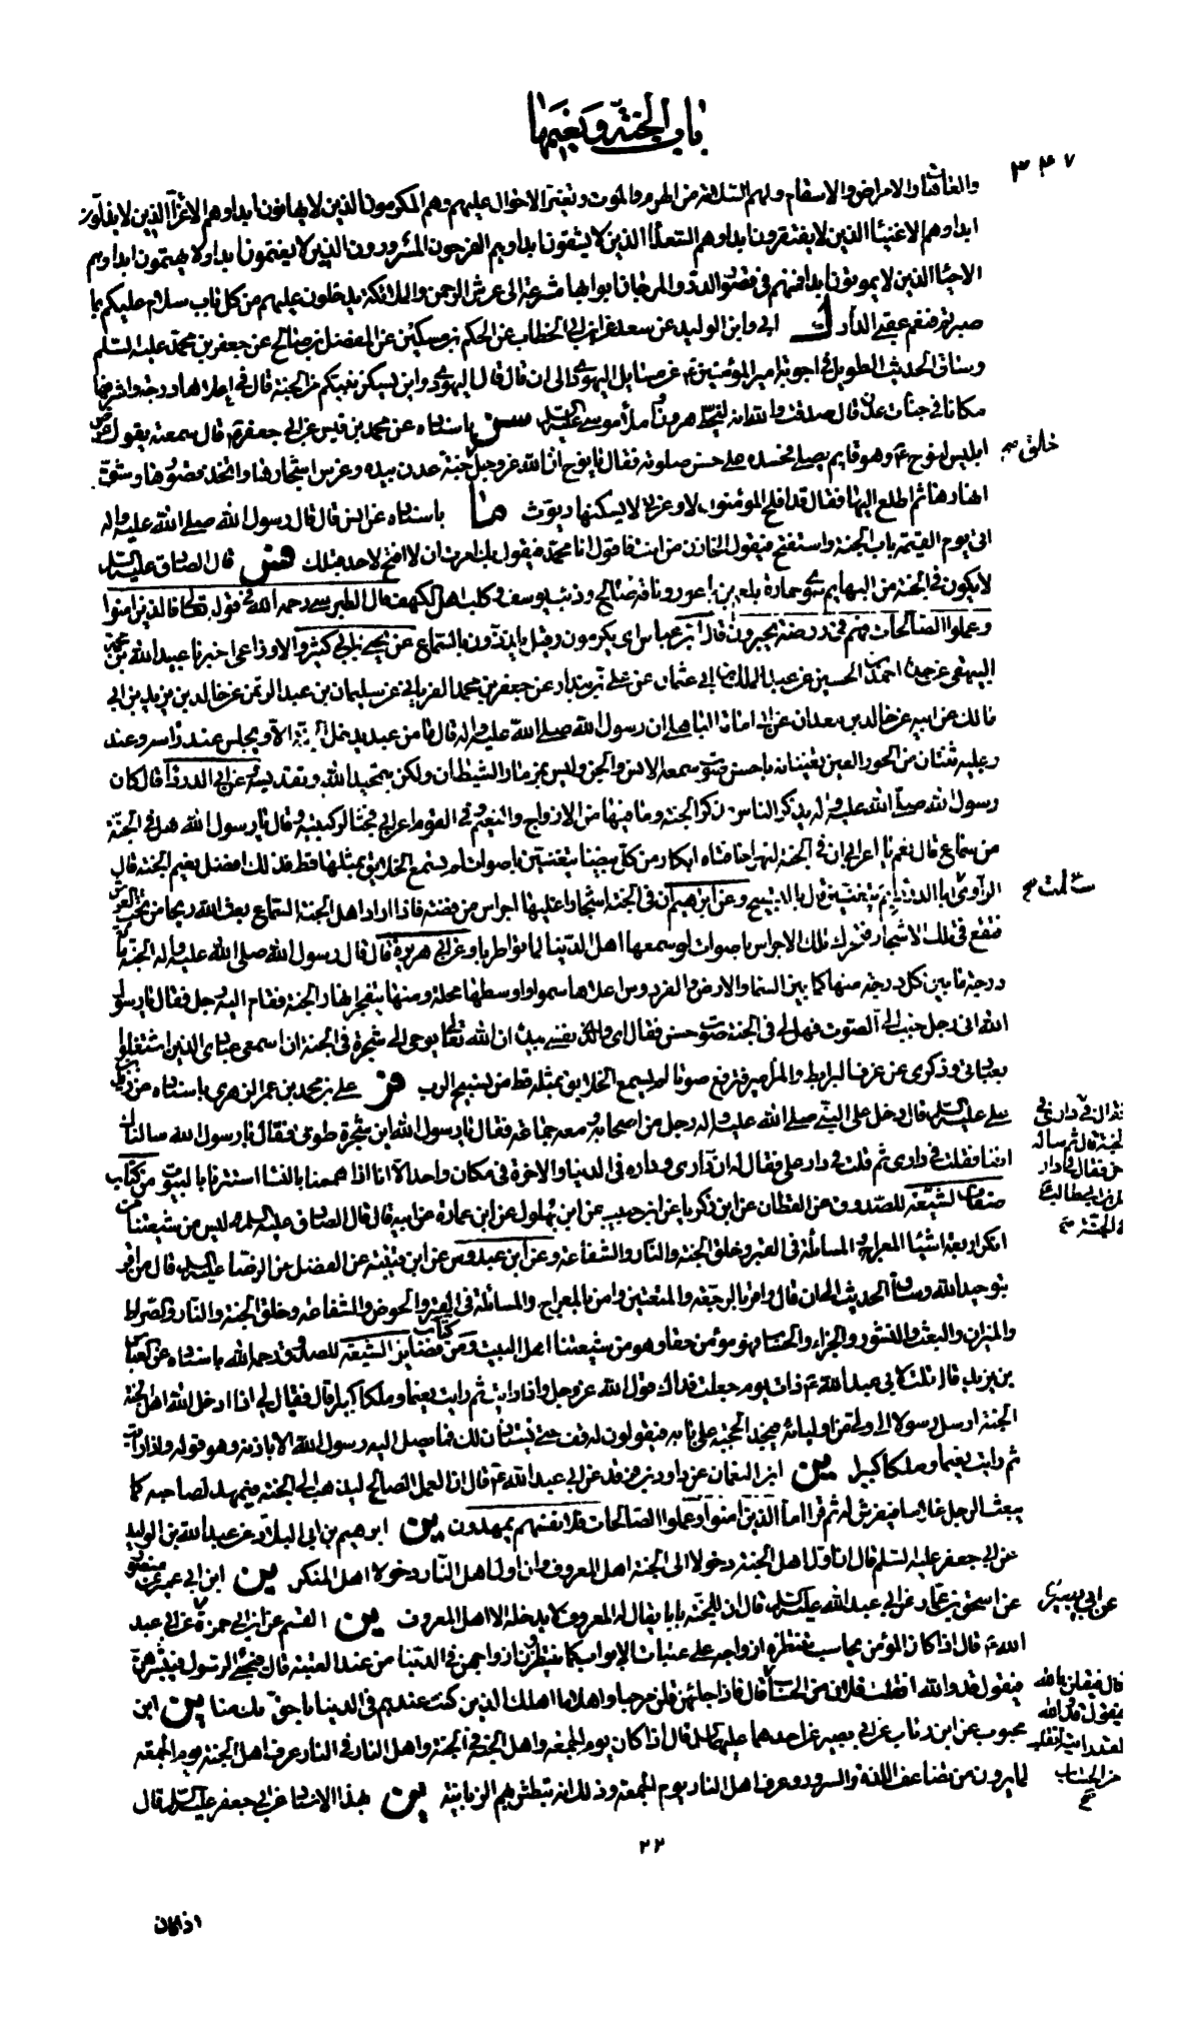 باب الجنة ونعيمها
٣٤٧
والعاهات والامراض والاسقام ولهم السلامة من الهرم والموت وتغير الاحوال عليهم وهم المكرمون الذين لا يهانون ابدا وهم الاعزاء الذين لا يذلون
ابدا وهم الاغنياء الذين لا يفتقرون ابدا وهم السعداء الذين لا يشقون ابدا وهم الفرحون المسرورون الذين لا يغتمون ابدا ولا يهتمون ابدا وهم
الاحياء الذين لا يموتون ابدا فهم في قصور الدر والمرجان ابوابها مشرعة الى عرش الرحمن والملائكة يدخلون عليهم من كل باب سلام عليكم بما
صبرتم فنعم عقبى الدار ك ابى وابن الوليد عن سعد عن ابن ابي الخطاب عن الحكم بن مسكين عن المفضل بن صالح عن جعفر بن محمد عليه السلم
وساق الحديث الطويل في اجوبة امير المؤمنين ع عن مسايل اليهودي الى ان قال قال اليهودي واين يسكن نبيكم من الجنة قال في اعلاها درجة واشرفها
مكانا في جنات عدن قال صدقت والله انه لبخط هرون واملاء موسى عليه السلم سن باسناده عن محمد بن قيس عن ابي جعفر ع قال سمعته يقول
ابليس لنوح ع وهو قايم يصلي فحسده على حسن صلوته فقال يا نوح ان الله عز وجل جنة عدن بيده وغرس اشجارها واتخذ قصورها وشق
خلق صح
انهارها ثم اطلع اليها فقال قد افلح المؤمنون لا وعزتي لا يسكنها ديوث ما باسناده عن انس قال قال رسول الله صلى الله عليه واله
اتى يوم القيمة باب الجنة واستفتح فيقول الخازن من انت فاقول انا محمد فيقول بك امرت ان لا افتح لاحد قبلك فس قال الصادق عليه السلم
لا يكون في الجنة من البهايم سوى حمارة بلعم بن باعور وناقة صالح وذئب يوسف وكلب اهل الكهف قال الطبرسي رحمه الله في قوله تعالى فاما الذين امنوا
وعملوا الصالحات فهم في روضة يحبرون قال ابن عباس اي يكرمون وقيل يلذذون بالسماع عن يحيى بن ابي كثير والاوزاعي اخبرنا عبيد الله بن محمد
البيهقي عن جده احمد بن الحسين عن عبد الملك بن ابي عثمان عن علي بن بندار عن جعفر بن محمد الفريابي عن سليمان بن عبد الرحمن عن خالد بن يزيد بن ابي
مالك عن ابيه عن خالد بن معدان عن ابي امامة الباهلي ان رسول الله صلى الله عليه واله قال ما من عبد يدخل الجنة الا ويجلس عند راسه وعند
رجليه ثنتان من الحور العين تغنيانه باحسن صوت سمعه الانس والجن وليس بمزمار الشيطان ولكن بتمجيد الله وتقديسه وعن ابي الدرداء قال كان
رسول الله صلى الله عليه واله يذكر الناس فذكر الجنة وما فيها من الازواج والنعيم وفي القوم اعرابي فجثا لركبتيه وقال يا رسول الله هل في الجنة
من سماع قال نعم يا اعرابي ان في الجنة لنهرا حافتاه ابكار من كل بيضاء يتغنين باصوات لم يسمع الخلايق بمثلها قط فذلك افضل نعيم الجنة قال
الراوي ابا الدرداء بم يتغنين قال بالتسبيح وعن ابرهيم ان في الجنة اشجارا عليها اجراس من فضة فاذا اراد اهل الجنة السماع بعث الله ريحا من تحت العرش
سالت صح
فتقع في تلك الاشجار فتحرك تلك الاجراس باصوات لو سمعها اهل الدنيا لماتوا طربا وعن ابي هريرة قال قال رسول الله صلى الله عليه واله الجنة ماة
درجة ما بين كل درجة منها كما بين السماء والارض والفردوس اعلاها سموا واوسطها محلة ومنها يتفجر انهار الجنة فقام اليه رجل فقال يا رسول
الله اني رجل حبب الي الصوت فهل لي في الجنة صوت حسن فقال اي والذي نفسي بيده ان الله تعالى يوحي الى شجرة في الجنة ان اسمعي عبادي الذين اشتغلوا
بعبادتي وذكري عن عزف البرابط والمزامير فترفع صوتا لم يسمع الخلايق بمثله قط من تسبيح الرب فر علي بن محمد بن عمر الزهري باسناده عن زيد بن
علي عليه السلم قال دخل على النبي صلى الله عليه واله رجل من اصحابه ومعه جماعة فقال يا رسول الله اين شجرة طوبى فقال يا رسول الله سالناك
اينا فقلت في داري ثم قلت في دار علي فقال له ان داري وداره في الدنيا والاخرة في مكان واحد الا انا اذا هممنا بالنساء استترنا بالبيوت من كتاب
صفات الشيعة للصدوق عن القطان عن ابن زكريا عن ابن حبيب عن ابن بهلول عن ابن عمارة عن ابيه قال قال الصادق عليه السلم ليس من شيعتنا من
انكر اربعة اشياء المعراج والمسائلة في القبر وخلق الجنة والنار والشفاعة وعن ابن عبدوس عن ابن قتيبة عن الفضل عن الرضا عليه السلم قال من اقر
بتوحيد الله وساق الحديث الى ان قال وامن بالرجعة والمتعتين وامن بالمعراج والمسائلة في القبر والحوض والشفاعة وخلق الجنة والنار والصراط
والميزان والبعث والنشور والجزاء والحساب فهو مؤمن حقا وهو من شيعتنا اهل البيت ومن كتاب فضايل الشيعة للصدوق رحمه الله باسناده عن العباس
بن يزيد قال قلت لابي عبد الله ع ذات يوم جعلت فداك قول الله عز وجل واذا رايت ثم رايت نعيما وملكا كبيرا قال فقال لي اذا ادخل الله اهل الجنة
الجنة ارسل رسولا الى ولي من اوليائه فيجد الحجبة على بابه فيقولون له قف حتى نستاذن لك فما يصل اليه رسول الله الا باذنه وهو قوله واذا رايت
ثم رايت نعيما وملكا كبيرا ين ابن النعمان عن داود بن فرقد عن ابي عبد الله ع قال ان العمل الصالح ليذهب الى الجنة فيمهد لصاحبه كما
يبعث الرجل غلامه فيفرش له ثم قرا اما الذين امنوا وعملوا الصالحات فلانفسهم يمهدون ين ابرهيم بن ابي البلاد عن عبد الله بن الوليد
عن ابي جعفر عليه السلم قال ان اول اهل الجنة دخولا الى الجنة اهل المعروف وان اول اهل النار دخولا اهل المنكر ين ابن ابي عمير عن منصور
عن اسحق بن عمار عن ابي عبد الله عليه السلم قال ان للجنة بابا يقال له المعروف لا يدخله الا اهل المعروف ين القسم عن ابن ابي حمزة عن ابي عبد
عن ابي بصير
الله ع قال اذا كان المؤمن يحاسب تنتظره ازواجه على عتبات الابواب كما ينتظرن ازواجهن في الدنيا من عند الغيبة قال فيجئ الرسول فيبشرهن
فيقول قد والله انقلب فلان من الحساب قال فاذا جاءهن قلن مرحبا واهلا ما اهلك الذين كنت عندهم في الدنيا باحق بك منا ين ابن
محبوب عن ابن رئاب عن ابي بصير عن احدهما عليهما السلم قال اذا كان يوم الجمعة واهل الجنة في الجنة واهل النار في النار عرف اهل الجنة يوم الجمعة
لما يرون من تضاعف اللذة والسرور وعرف اهل النار يوم الجمعة وذلك انه تبطش بهم الزبانية ين بهذا الاسناد عن ابي جعفر عليه السلم قال
فقال في داري في
الجنة قال ثم ساله
اخر فقال في دار
علي بن ابي طالب
في الجنة صح
قال فيقلن بالله
فيقول قد والله
لقد رايته انقلب
من الحساب
صح
٢٢
اذا كان